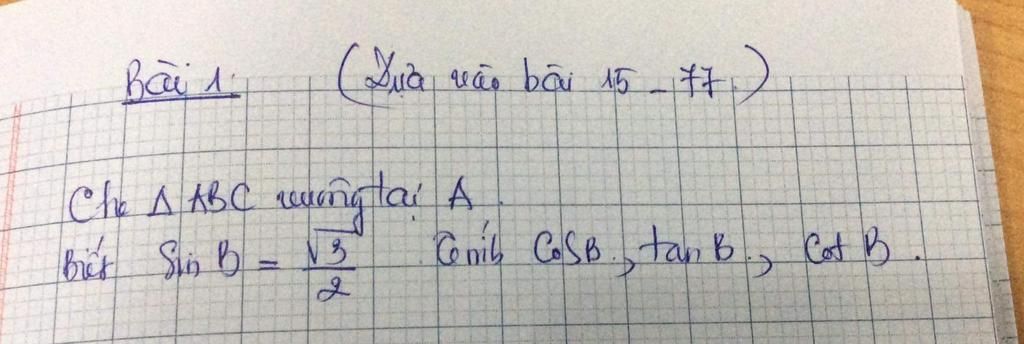 Bài 1. (Dựa vào bài 15 - 77)
Cho Δ ABC vuông tại A.
Biết Sin B = √3/2 Tính CosB, tan B, Cot B.